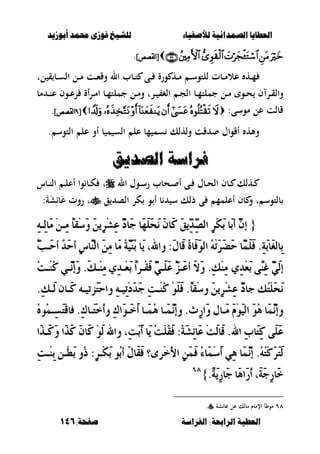 العطايا الصمدانية للأصفياء للشيخ فوزى محمد أبوزيد
خَيْرَ مَنِ اسْتَأْجَرْتَ الْقَوِيُّ الْأَمِينُ [القصص].
فهذه علامات للتوسم مذكورة فى كتاب الله وقعت من السابقين،
والقرآن يحوى من جملتها الجم الغفير، ومن جملتها امرأة فرعون عندما
قالت عن موسى: ﴿لَا تَقْتُلُوهُ عَسَىٰ أَن يَنفَعَنَا أَوْ نَتَّخِذَهُ وَلَدًا﴾ [٩القصص].
وهذه أقوال صدقت ولذلك نسميها علم السيميا أو علم التوسم.
فراسة الصديق
كذلك كان الحال فى أصحاب رسول الله ﷺ، فكانوا أعلم الناس
بالتوسم، وكان أعلمهم فى ذلك سيدنا أبو بكر الصديق ، روت عَائِشَةَ:
{ إنَّ أَبَا بَكْرٍ الصِّدِّيقَ كَانَ نَحَلَهَا جَادَّ عِشْرِينَ وَسْقاً مِنْ مَالِهِ
بِالْغَابَةِ، فَلَمَّا حَضَرَتْهُ الْوَفَاةُ قَالَ: والله، يَا بُنَيَّةُ مَا مِنَ النَّاسِ أَحَدٌ أَحَبُّ
إِلَيَّ غِنًى بَعْدِي مِنْكِ. وَلاَ أَعَزُّ عَلَيَّ فَقْراً بَعْدِي مِنْكِ. وَإِنِّي كُنْتُ
نَحَلْتُكِ جادَّ عِشْرِينَ وَسْقاً. فَلَوْ كُنْتِ جَدَدْتِيهِ وَاحْتَزْتِيهِ كَانَ لَكِ.
وَإِنَّمَا هُوَ الْيَوْمَ مَالُ وَارِثٍ. وَإِنَّمَا هُمَا أَخَوَاكِ وَأُخْتَاكِ. فَاقْتَسِمُوهُ
عَلَى كِتَابِ الله. قَالَتْ عَائِشَةُ: فَقُلْتُ: يَا أَبَتِ، والله لَوْ كَانَ كَذَا وَكَذَا
لَتَرَكْتُهُ. إِنَّمَا هِيَ أَسْمَاءُ، فَمَنِ الأُخْرَى؟ فَقَالَ أَبُو بَكْرٍ: ذُو بَطْنِ بِنْتِ
خَارِجَةَ، أُرَاهَا جَارِيَةً.} ٦٨
٦٨ موطأ الإمام مالك عن عائشة
العطية الرابعة: الفراسة صفحة:١٤٦